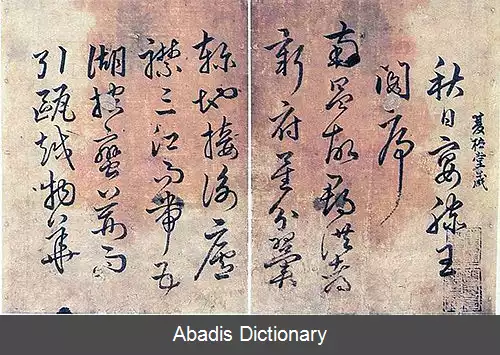 秋日宴滕王
閣序
南昌故郡洪都
新府星分翼
軫地接衡廬
襟三江而帶五
湖控蠻荊而
引甌越物華
Abadis Dictionary